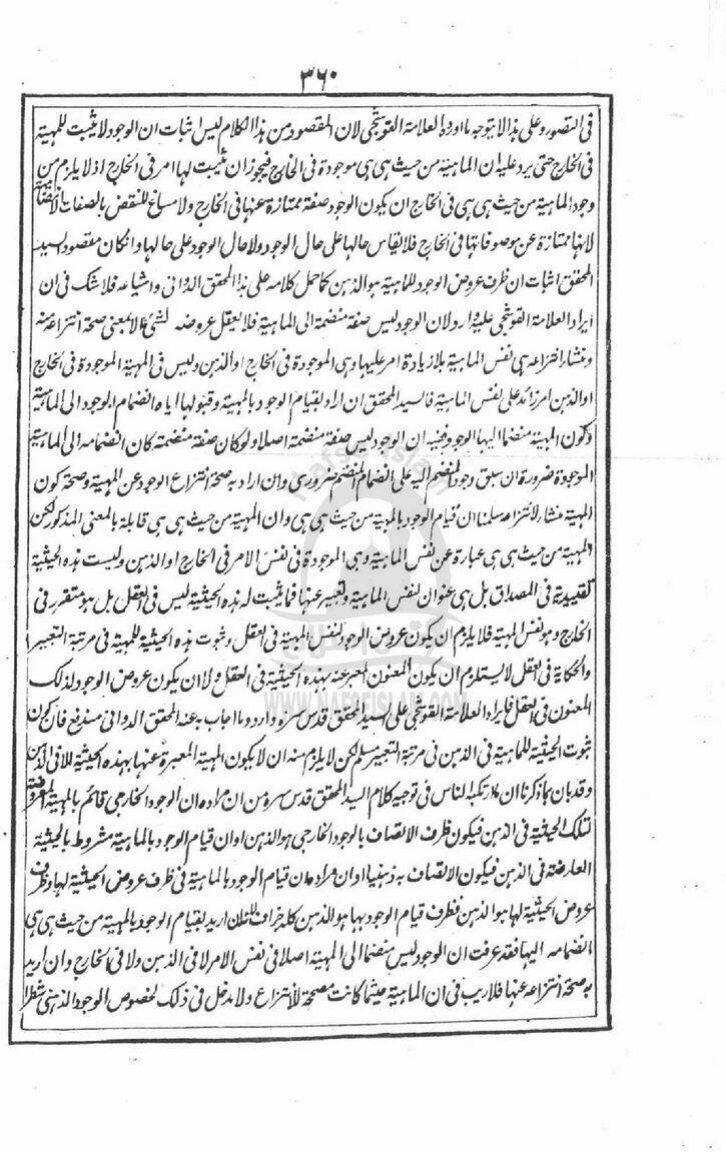 ٣٦٠
فى التصور وعلى هذا لا يتوجه ما اورده العلامة القوشجى لان المقصود من هذا الكلام ليس اثبات ان الوجود لا يثبت للمهية
فى الخارج حتى يرد عليه ان الماهية من حيث هى هى موجودة فى الخارج فيجوز ان يثبت لها امر فى الخارج اذ لا يلزم من
وجود الماهية من حيث هى هى فى الخارج ان يكون الوجود صفة ممتازة عنها فى الخارج ولا مساغ للنقض بالصفات الانضمامية
لانها ممتازة عن موصوفاتها فى الخارج فلا يقاس حالها على حال الوجود ولا حال الوجود على حالها وان كان مقصود السيد
المحقق اثبات ان ظرف عروض الوجود للماهية هو الذهن كما حمل كلامه على هذا المحقق الدوانى واشياعه فلا شك فى ان
ايراد العلامة القوشجى عليه وارد لان الوجود ليس صفة منضمة الى الماهية فلا يعقل عروضه لشئ الا بمعنى صحة انتزاعه منه
ومنشأ انتزاعه هى نفس الماهية بلا زيادة امر عليها وهى الموجودة فى الخارج او الذهن وليس فى المهية الموجودة فى الخارج
او الذهن امر زائد على نفس الماهية فالسيد المحقق ان اراد بقيام الوجود بالمهية وقبولها اياه انضمام الوجود الى الماهية
وكون المهية منضما اليها الوجود ففيه ان الوجود ليس صفة منضمة اصلا ولو كان صفة منضمة كان انضمامه الى الماهية
الموجودة ضرورة ان سبق وجود المنضم اليه على انضمام المنضم ضرورى وان اراد به صحة انتزاع الوجود عن المهية وصحة كون
المهية منشأ لانتزاعه سلمنا ان قيام الوجود بالمهية من حيث هى هى وان المهية من حيث هى هى قابلة بالمعنى المذكور لكن
المهية من حيث هى هى عبارة عن نفس الماهية وهى الموجودة فى نفس الامر فى الخارج او الذهن وليست هذه الحيثية
تقييدية فى المصداق بل هى عنوان لنفس الماهية وتعبير عنها فما يثبت له هذه الحيثية ليس فى العقل بل هو متقرر فى
الخارج وهو نفس المهية فلا يلزم ان يكون عروض الوجود لنفس المهية فى العقل وثبوت هذه الحيثية للمهية فى مرتبة التعبير
والحكاية فى العقل لا يستلزم ان يكون المعنون المعبر عنه بهذه الحيثية فى العقل ولا ان يكون عروض الوجود لذلك
المعنون فى العقل فايراد العلامة القوشجى على السيد المحقق قدس سره وارد وما اجاب به عنه المحقق الدوانى مندفع فان كون
ثبوت الحيثية للماهية فى الذهن فى مرتبة التعبير مسلم لكن لا يلزم منه ان لا يكون المهية المعبرة عنها بهذه الحيثية الا فى الذهن
وقد بان بما ذكرنا ان ما يرتكبه الناس فى توجيه كلام السيد المحقق قدس سره من ان مراده ان الوجود الخارجى قائم بالمهية المعروضة
لتلك الحيثية فى الذهن فيكون ظرف الاتصاف بالوجود الخارجى هو الذهن او ان قيام الوجود بالماهية مشروط بالحيثية
العارضة فى الذهن فيكون الاتصاف به ذهنيا او ان مراده ان قيام الوجود بالماهية فى ظرف عروض الحيثية لها وظرف
عروض الحيثية لها هو الذهن فظرف قيام الوجود بها هو الذهن كله جزاف لانه ان اريد بقيام الوجود بالمهية من حيث هى هى
انضمامه اليها فقد عرفت ان الوجود ليس منضما الى المهية اصلا فى نفس الامر لا فى الذهن ولا فى الخارج وان اريد
به صحة انتزاعه عنها فلا ريب فى ان الماهية حيثما كانت مصححة للانتزاع ولا مدخل فى ذلك لخصوص الوجود الذهنى شطرا
Nafse Islam
WWW.NAFSEISLAM.COM